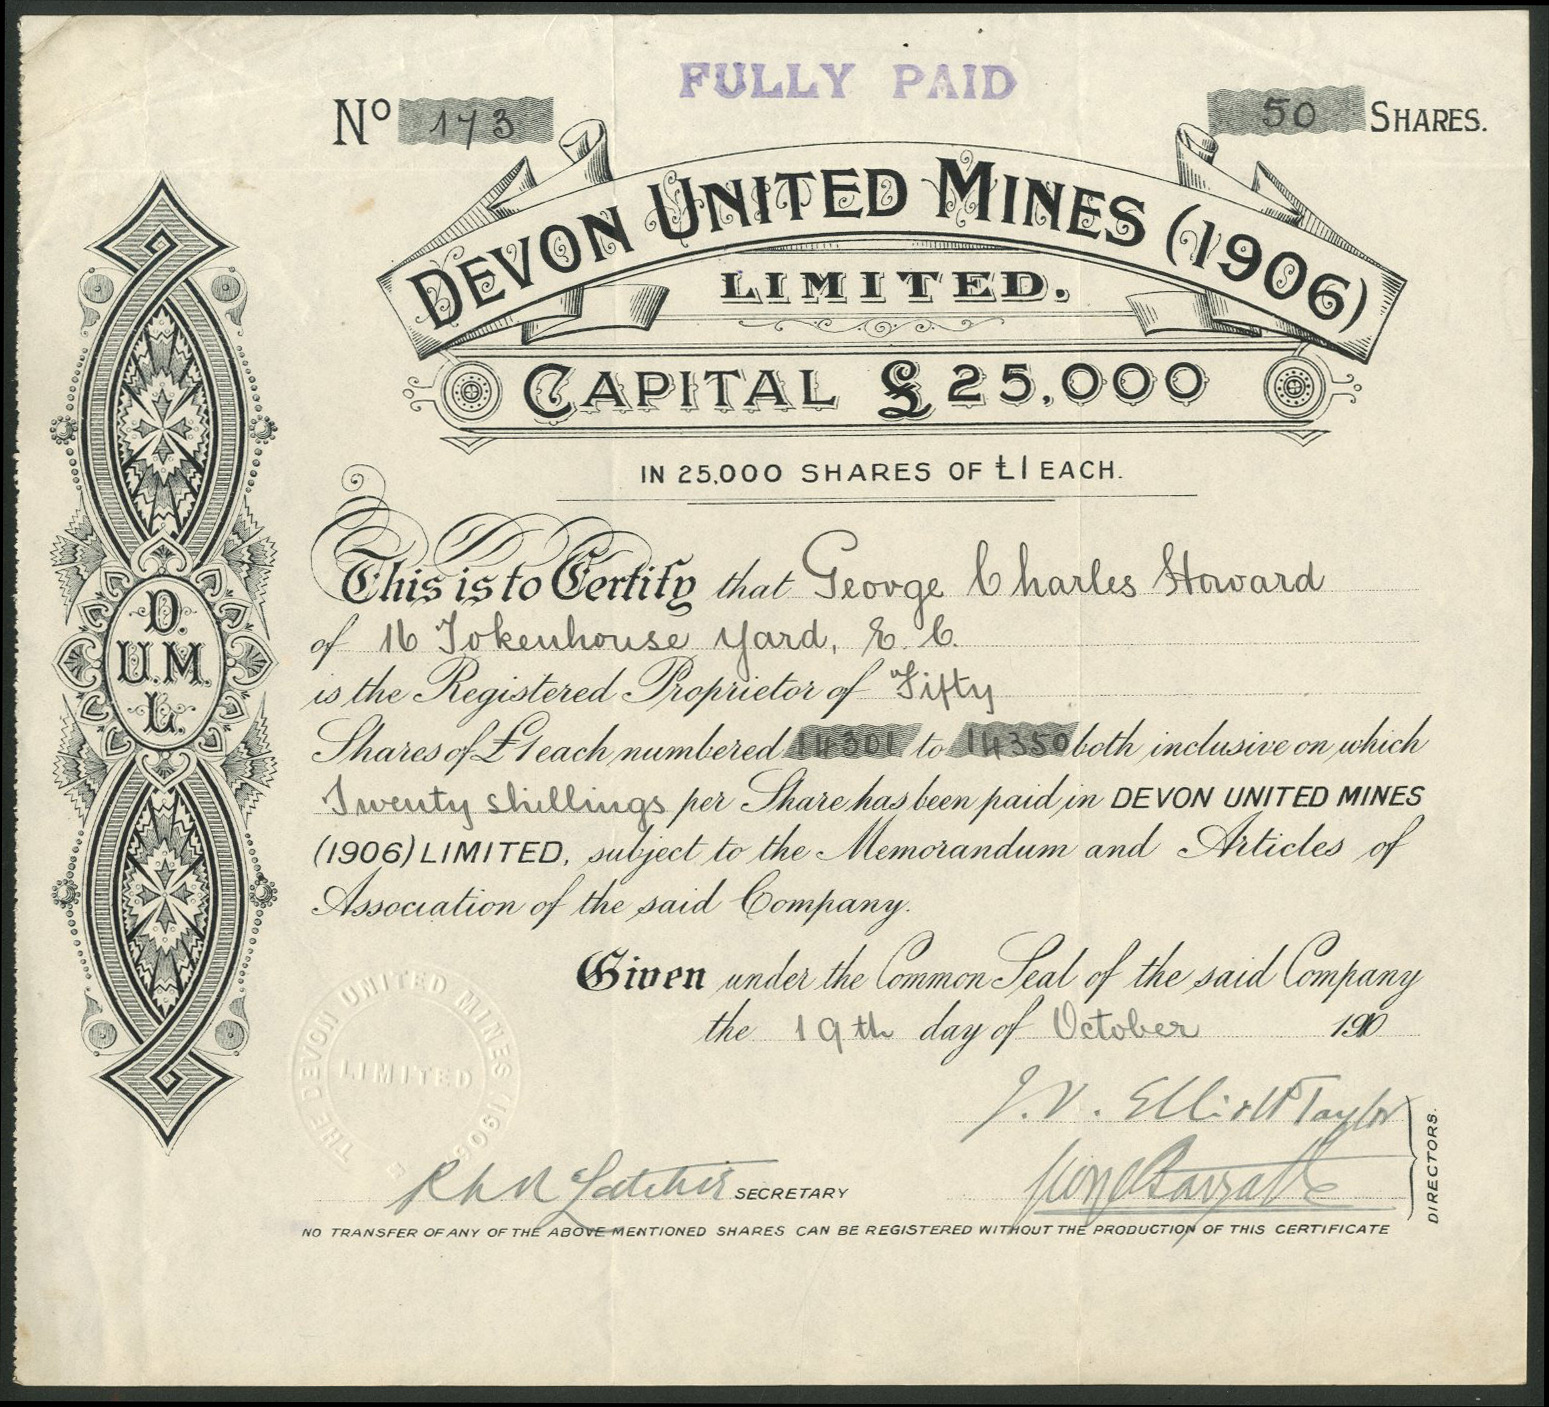 FULLY PAID
No 173
50 SHARES.
DEVON UNITED MINES (1906)
LIMITED.
CAPITAL £25,000
IN 25,000 SHARES OF £1 EACH.
This is to Certify that George Charles Howard
of 16 Tokenhouse Yard, E. C.
is the Registered Proprietor of Fifty
Shares of £1 each numbered 14301 to 14350 both inclusive on which
Twenty shillings per Share has been paid in DEVON UNITED MINES
(1906) LIMITED, subject to the Memorandum and Articles of
Association of the said Company.
D.
U.M.
L.
Given under the Common Seal of the said Company
the 19th day of October 190
THE DEVON UNITED MINES (1906)
LIMITED
J. V. Elliott Taylor
SECRETARY
DIRECTORS.
NO TRANSFER OF ANY OF THE ABOVE MENTIONED SHARES CAN BE REGISTERED WITHOUT THE PRODUCTION OF THIS CERTIFICATE